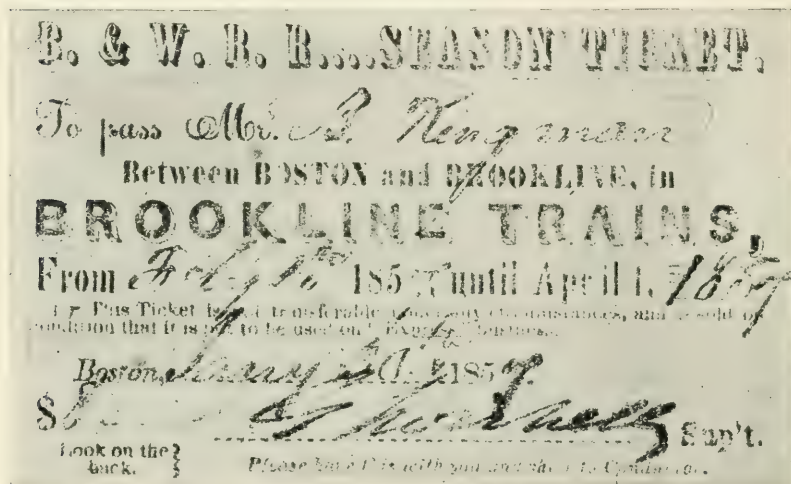 B. & W. R. R....SEASON TICKET.
To pass Mr. B. Kingman
Between BOSTON and BROOKLINE, in
BROOKLINE TRAINS,
From Feby 1st 1857 until April 1, 1857
This Ticket is not transferable under any circumstances, and is sold on
condition that it is not to be used on "Express" business.
Boston, 185
$
Sup't.
Look on the
back.
Please have this with you and show to Conductor.